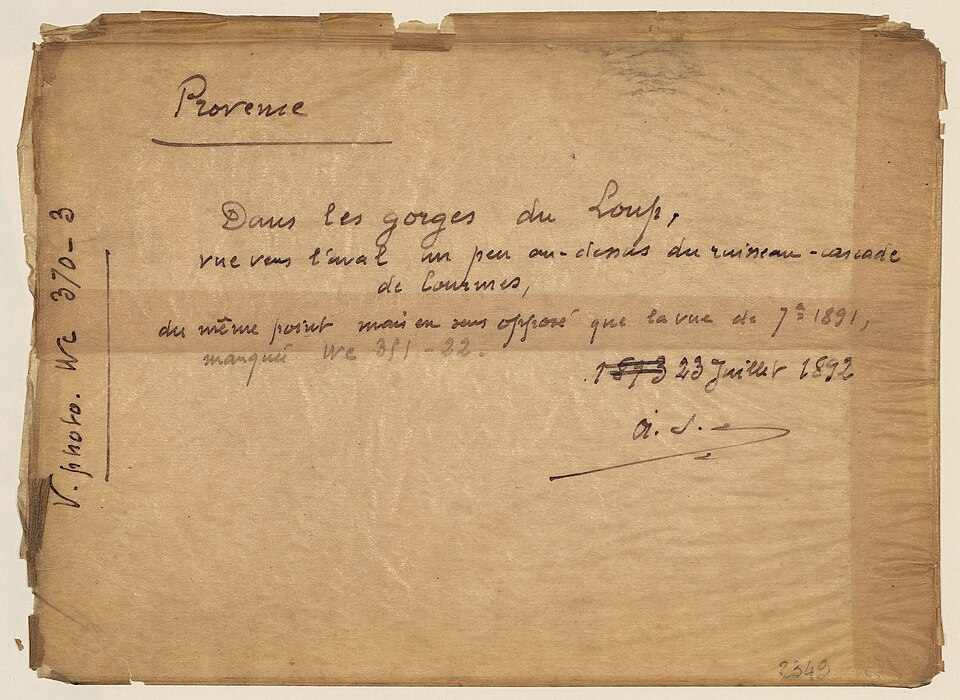 Provence
Dans les gorges du Loup,
vue vers l'aval un peu au-dessus du ruisseau-cascade
de Courmes,
du même point mais en sens opposé que la vue de 7bre 1891,
marquée We 351-22.
1893 23 Juillet 1892
a. S.
V. photo. We 370-3
2349